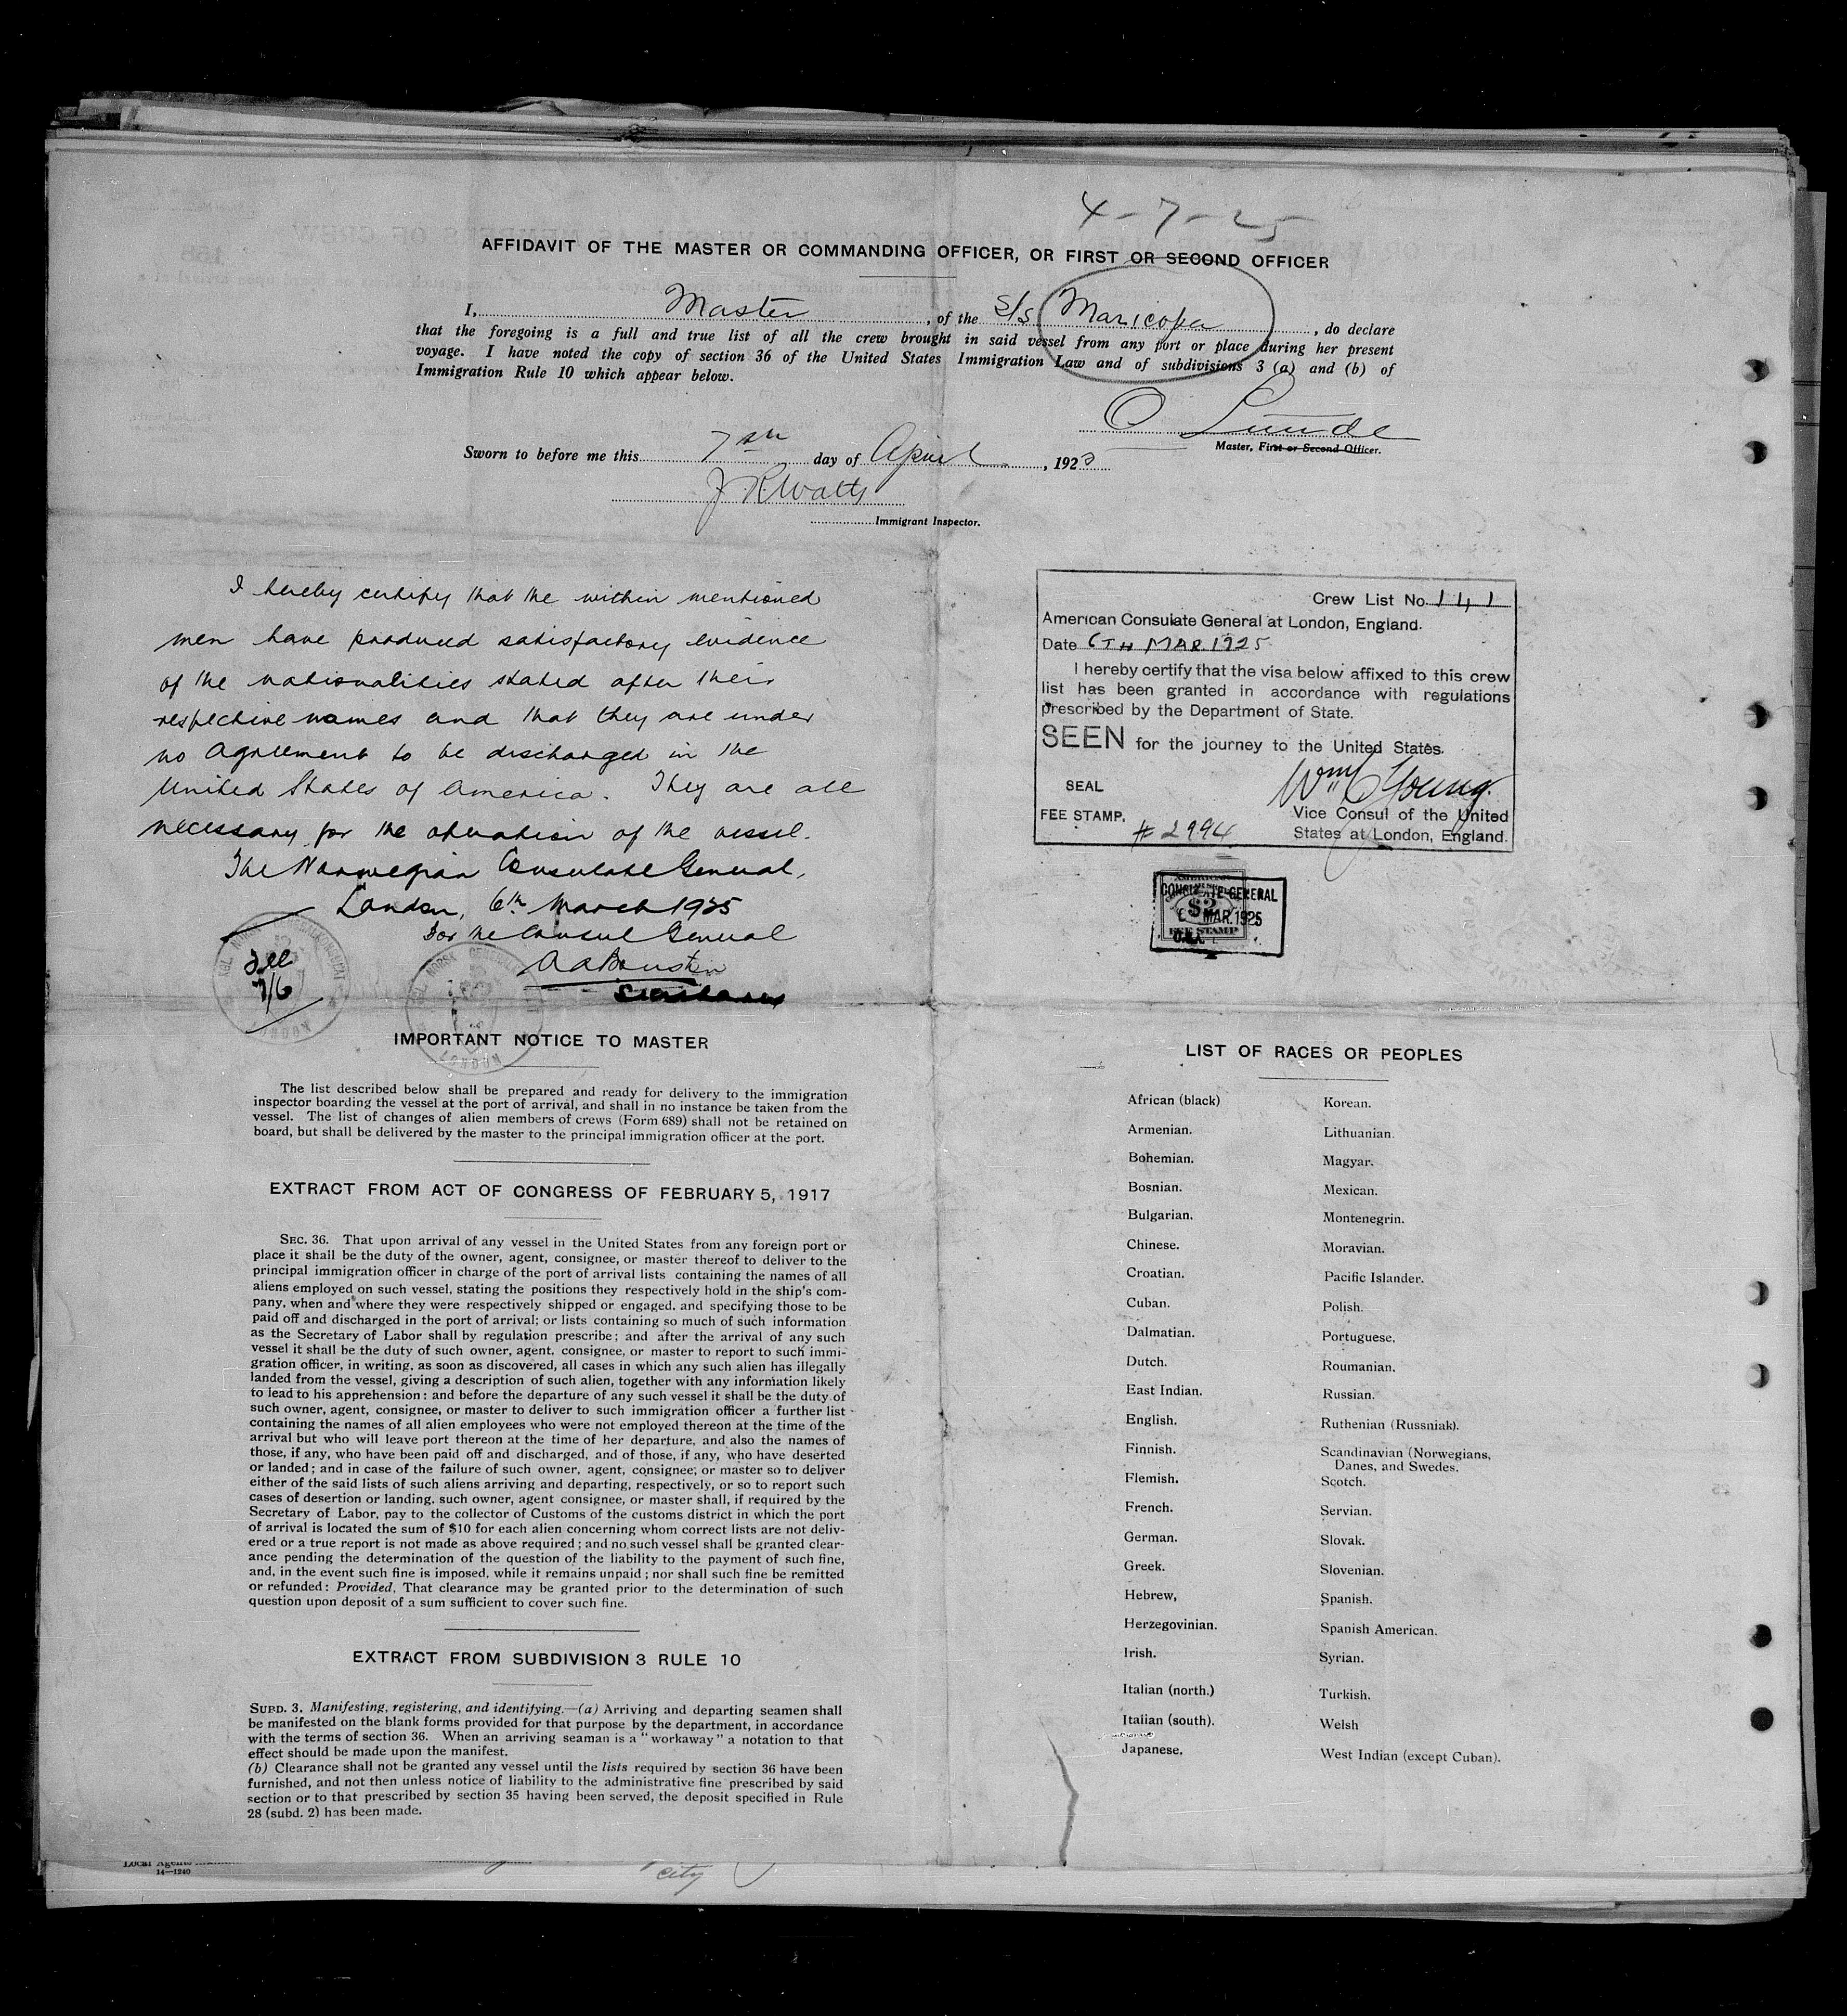 4-7-25
AFFIDAVIT OF THE MASTER OR COMMANDING OFFICER, OR FIRST OR SECOND OFFICER
I, Master, of the S/S Maricopa, do declare
that the foregoing is a full and true list of all the crew brought in said vessel from any port or place during her present
voyage. I have noted the copy of section 36 of the United States Immigration Law and of subdivisions 3 (a) and (b) of
Immigration Rule 10 which appear below.
O Lunde
Master, First or Second Officer.
Sworn to before me this 7th day of April, 192
J. R. Watts
Immigrant Inspector.
I hereby certify that the within mentioned
men have produced satisfactory evidence
of the nationalities stated after their
respective names and that they are under
no agreement to be discharged in the
United States of America. They are all
necessary for the operation of the vessel.
The Norwegian Consulate General,
London, 6th March 1925
For the Consul General
Fee
7/6
LONDON
LONDON
Crew List No. 141
American Consulate General at London, England.
Date 6TH MAR. 1925
I hereby certify that the visa below affixed to this crew
list has been granted in accordance with regulations
prescribed by the Department of State.
SEEN for the journey to the United States.
SEAL
Wm C Young.
FEE STAMP.
Vice Consul of the United
# 2994
States at London, England.
AMERICAN
CONSULATE GENERAL
$2
MAR. 1925
FEE STAMP
IMPORTANT NOTICE TO MASTER
The list described below shall be prepared and ready for delivery to the immigration
inspector boarding the vessel at the port of arrival, and shall in no instance be taken from the
vessel. The list of changes of alien members of crews (Form 689) shall not be retained on
board, but shall be delivered by the master to the principal immigration officer at the port.
EXTRACT FROM ACT OF CONGRESS OF FEBRUARY 5, 1917
SEC. 36. That upon arrival of any vessel in the United States from any foreign port or
place it shall be the duty of the owner, agent, consignee, or master thereof to deliver to the
principal immigration officer in charge of the port of arrival lists containing the names of all
aliens employed on such vessel, stating the positions they respectively hold in the ship's com-
pany, when and where they were respectively shipped or engaged, and specifying those to be
paid off and discharged in the port of arrival; or lists containing so much of such information
as the Secretary of Labor shall by regulation prescribe; and after the arrival of any such
vessel it shall be the duty of such owner, agent, consignee, or master to report to such immi-
gration officer, in writing, as soon as discovered, all cases in which any such alien has illegally
landed from the vessel, giving a description of such alien, together with any information likely
to lead to his apprehension: and before the departure of any such vessel it shall be the duty of
such owner, agent, consignee, or master to deliver to such immigration officer a further list
containing the names of all alien employees who were not employed thereon at the time of the
arrival but who will leave port thereon at the time of her departure, and also the names of
those, if any, who have been paid off and discharged, and of those, if any, who have deserted
or landed; and in case of the failure of such owner, agent, consignee, or master so to deliver
either of the said lists of such aliens arriving and departing, respectively, or so to report such
cases of desertion or landing, such owner, agent consignee, or master shall, if required by the
Secretary of Labor, pay to the collector of Customs of the customs district in which the port
of arrival is located the sum of $10 for each alien concerning whom correct lists are not deliv-
ered or a true report is not made as above required; and no such vessel shall be granted clear-
ance pending the determination of the question of the liability to the payment of such fine,
and, in the event such fine is imposed, while it remains unpaid; nor shall such fine be remitted
or refunded: Provided, That clearance may be granted prior to the determination of such
question upon deposit of a sum sufficient to cover such fine.
EXTRACT FROM SUBDIVISION 3 RULE 10
SUBD. 3. Manifesting, registering, and identifying.—(a) Arriving and departing seamen shall
be manifested on the blank forms provided for that purpose by the department, in accordance
with the terms of section 36. When an arriving seaman is a "workaway" a notation to that
effect should be made upon the manifest.
(b) Clearance shall not be granted any vessel until the lists required by section 36 have been
furnished, and not then unless notice of liability to the administrative fine prescribed by said
section or to that prescribed by section 35 having been served, the deposit specified in Rule
28 (subd. 2) has been made.
LIST OF RACES OR PEOPLES
African (black)
Armenian.
Bohemian.
Bosnian.
Bulgarian.
Chinese.
Croatian.
Cuban.
Dalmatian.
Dutch.
East Indian.
English.
Finnish.
Flemish.
French.
German.
Greek.
Hebrew,
Herzegovinian.
Irish.
Italian (north.)
Italian (south).
Japanese.
Korean.
Lithuanian.
Magyar.
Mexican.
Montenegrin.
Moravian.
Pacific Islander.
Polish.
Portuguese.
Roumanian.
Russian.
Ruthenian (Russniak).
Scandinavian (Norwegians,
Danes, and Swedes.
Scotch.
Servian.
Slovak.
Slovenian.
Spanish.
Spanish American.
Syrian.
Turkish.
Welsh
West Indian (except Cuban).
Local Agents
14—1240
city